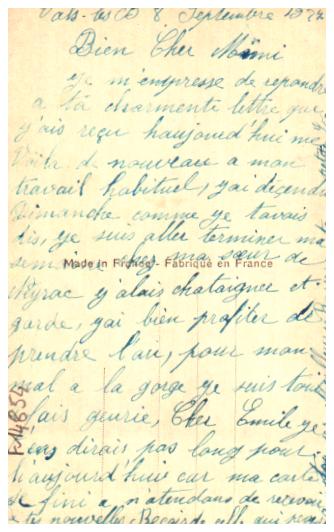 Vals-les-B 8 Septembre 1927
Bien Cher Mimi
je m'empresse de repondre
a ta charmente lettre que
j'ais reçu haujourd'hui me
Voila de nouveau a mon
travail habituel, j'ai désendu
Dimanche comme je t'avais
dis, je suis aller terminer ma
semaine ma sœur de
Meyrac j'alais chataignee et
garde, j'ai bien profiter de
prendre l'air, pour mon
mal a la gorge je suis tout
fais geurie, Cher Emile je
t'en dirais pas long pour
haujourd'huie car ma carte
fini a n'attendans de recevoir
tes nouvelles Recoids
Made in France - Fabriqué en France